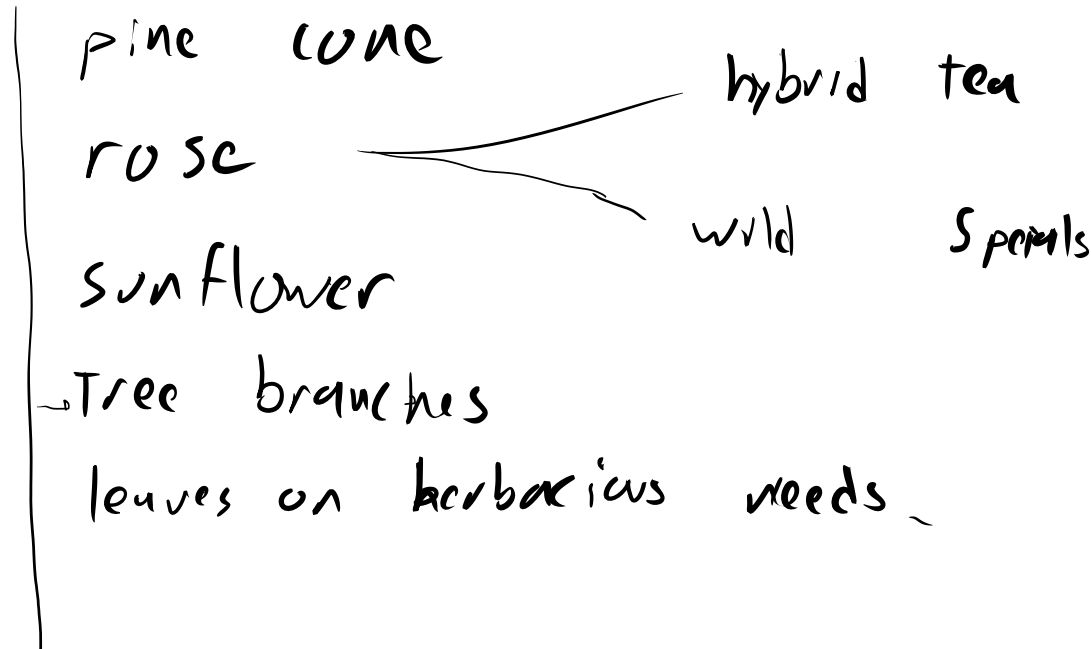 pine cone
hybrid tea
rose
wild
sunflower
Tree branches
leaves on herbacious weeds